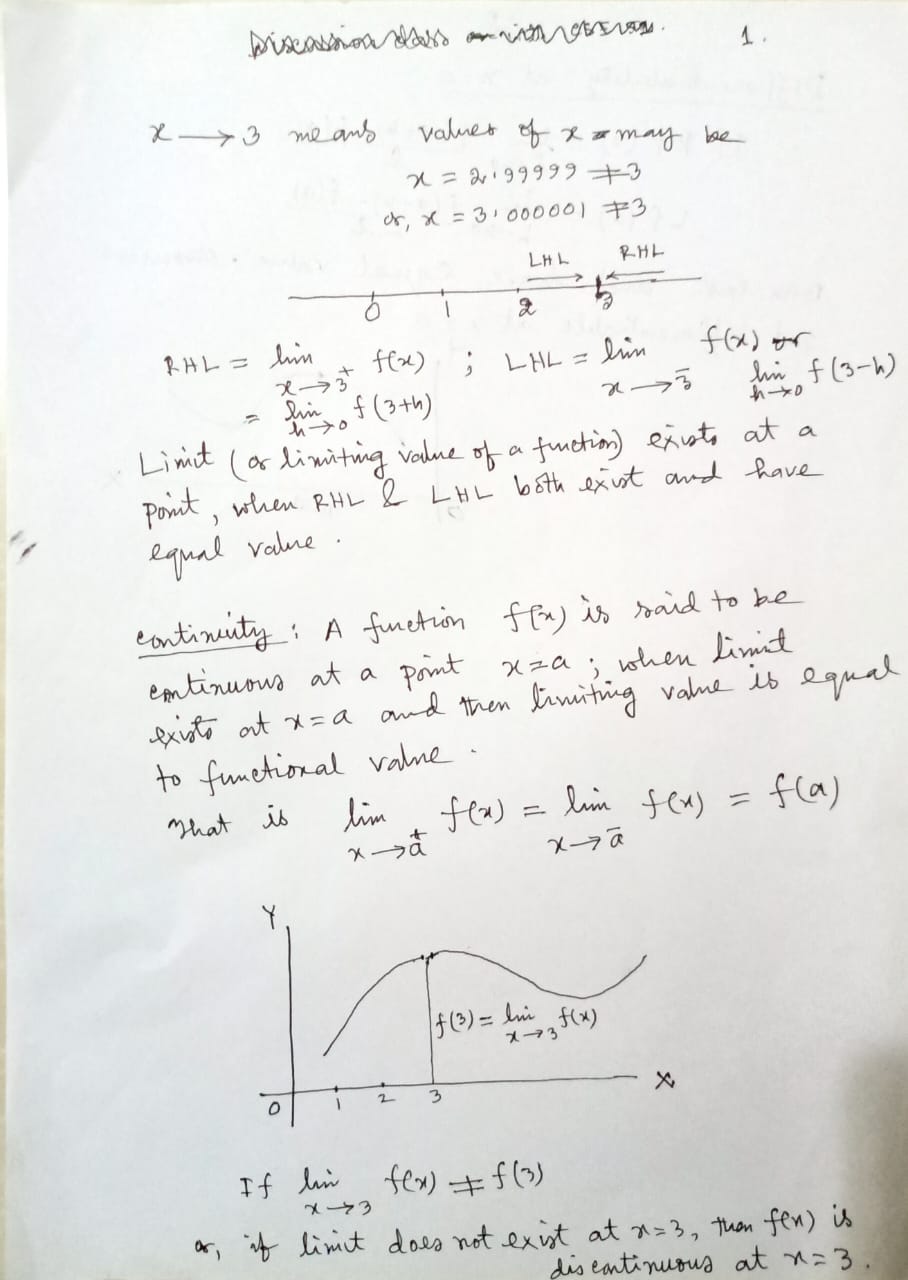 1.
x → 3 means values of x may be
x = 2.99999 ≠ 3
or, x = 3.000001 ≠ 3
LHL RHL
0 1 2 3
RHL = lim x→3⁺ f(x) ; LHL = lim x→3⁻ f(x) or lim h→0 f(3-h)
= lim h→0 f(3+h)
Limit (or limiting value of a function) exists at a
point, when RHL & LHL both exist and have
equal value.
continuity : A function f(x) is said to be
continuous at a point x=a ; when limit
exists at x=a and then limiting value is equal
to functional value.
That is lim x→a⁺ f(x) = lim x→a⁻ f(x) = f(a)
Y
f(3) = lim x→3 f(x)
X
0 1 2 3
If lim x→3 f(x) ≠ f(3)
or, if limit does not exist at x=3, then f(x) is
discontinuous at x=3.